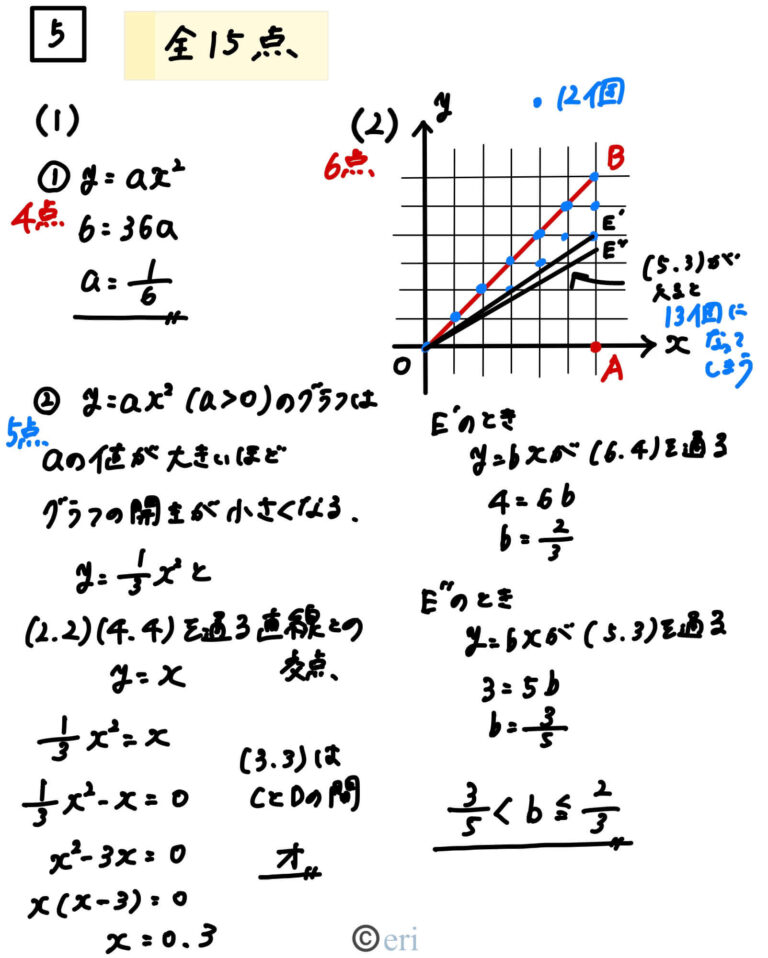 5
全15点
(1)
① y=ax²
4点
6=36a
a=1/6
② y=ax²(a>0)のグラフは
5点
aの値が大きいほど
グラフの開きが小さくなる.
y=1/3x²と
(2.2)(4.4)を通る直線との
y=x 交点、
1/3x²=x
1/3x²-x=0
x²-3x=0
x(x-3)=0
x=0.3
(3.3)は
CとDの間
オ
(2)
6点
・12個
y
B
E'
E"
(5.3)が
入ると
13個に
なって
しまう
x
O
A
E'のとき
y=bxが(6.4)を通る
4=6b
b=2/3
E"のとき
y=bxが(5.3)を通る
3=5b
b=3/5
3/5<b≦2/3
©eri